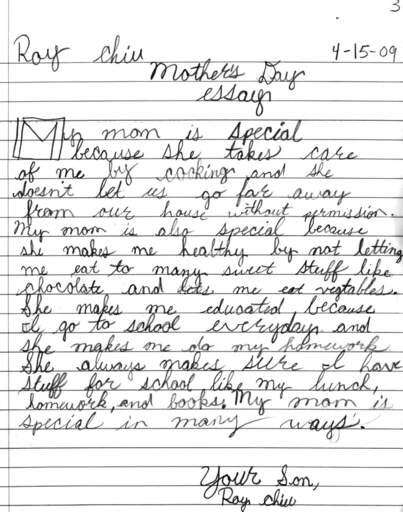 3
Roy Chiu 4-15-09
Mother's Day
essay
My mom is special
because she takes care
of me by cooking and she
doesn't let us go far away
from our house without permission.
My mom is also special because
she makes me healthy by not letting
me eat to many sweet stuff like
chocolate and lets me eat vegtables.
She makes me educated because
I go to school everyday and
she makes me do my homework
She always makes sure I have
stuff for school like my lunch,
homework, and books. My mom is
special in many ways.
Your Son,
Roy Chiu